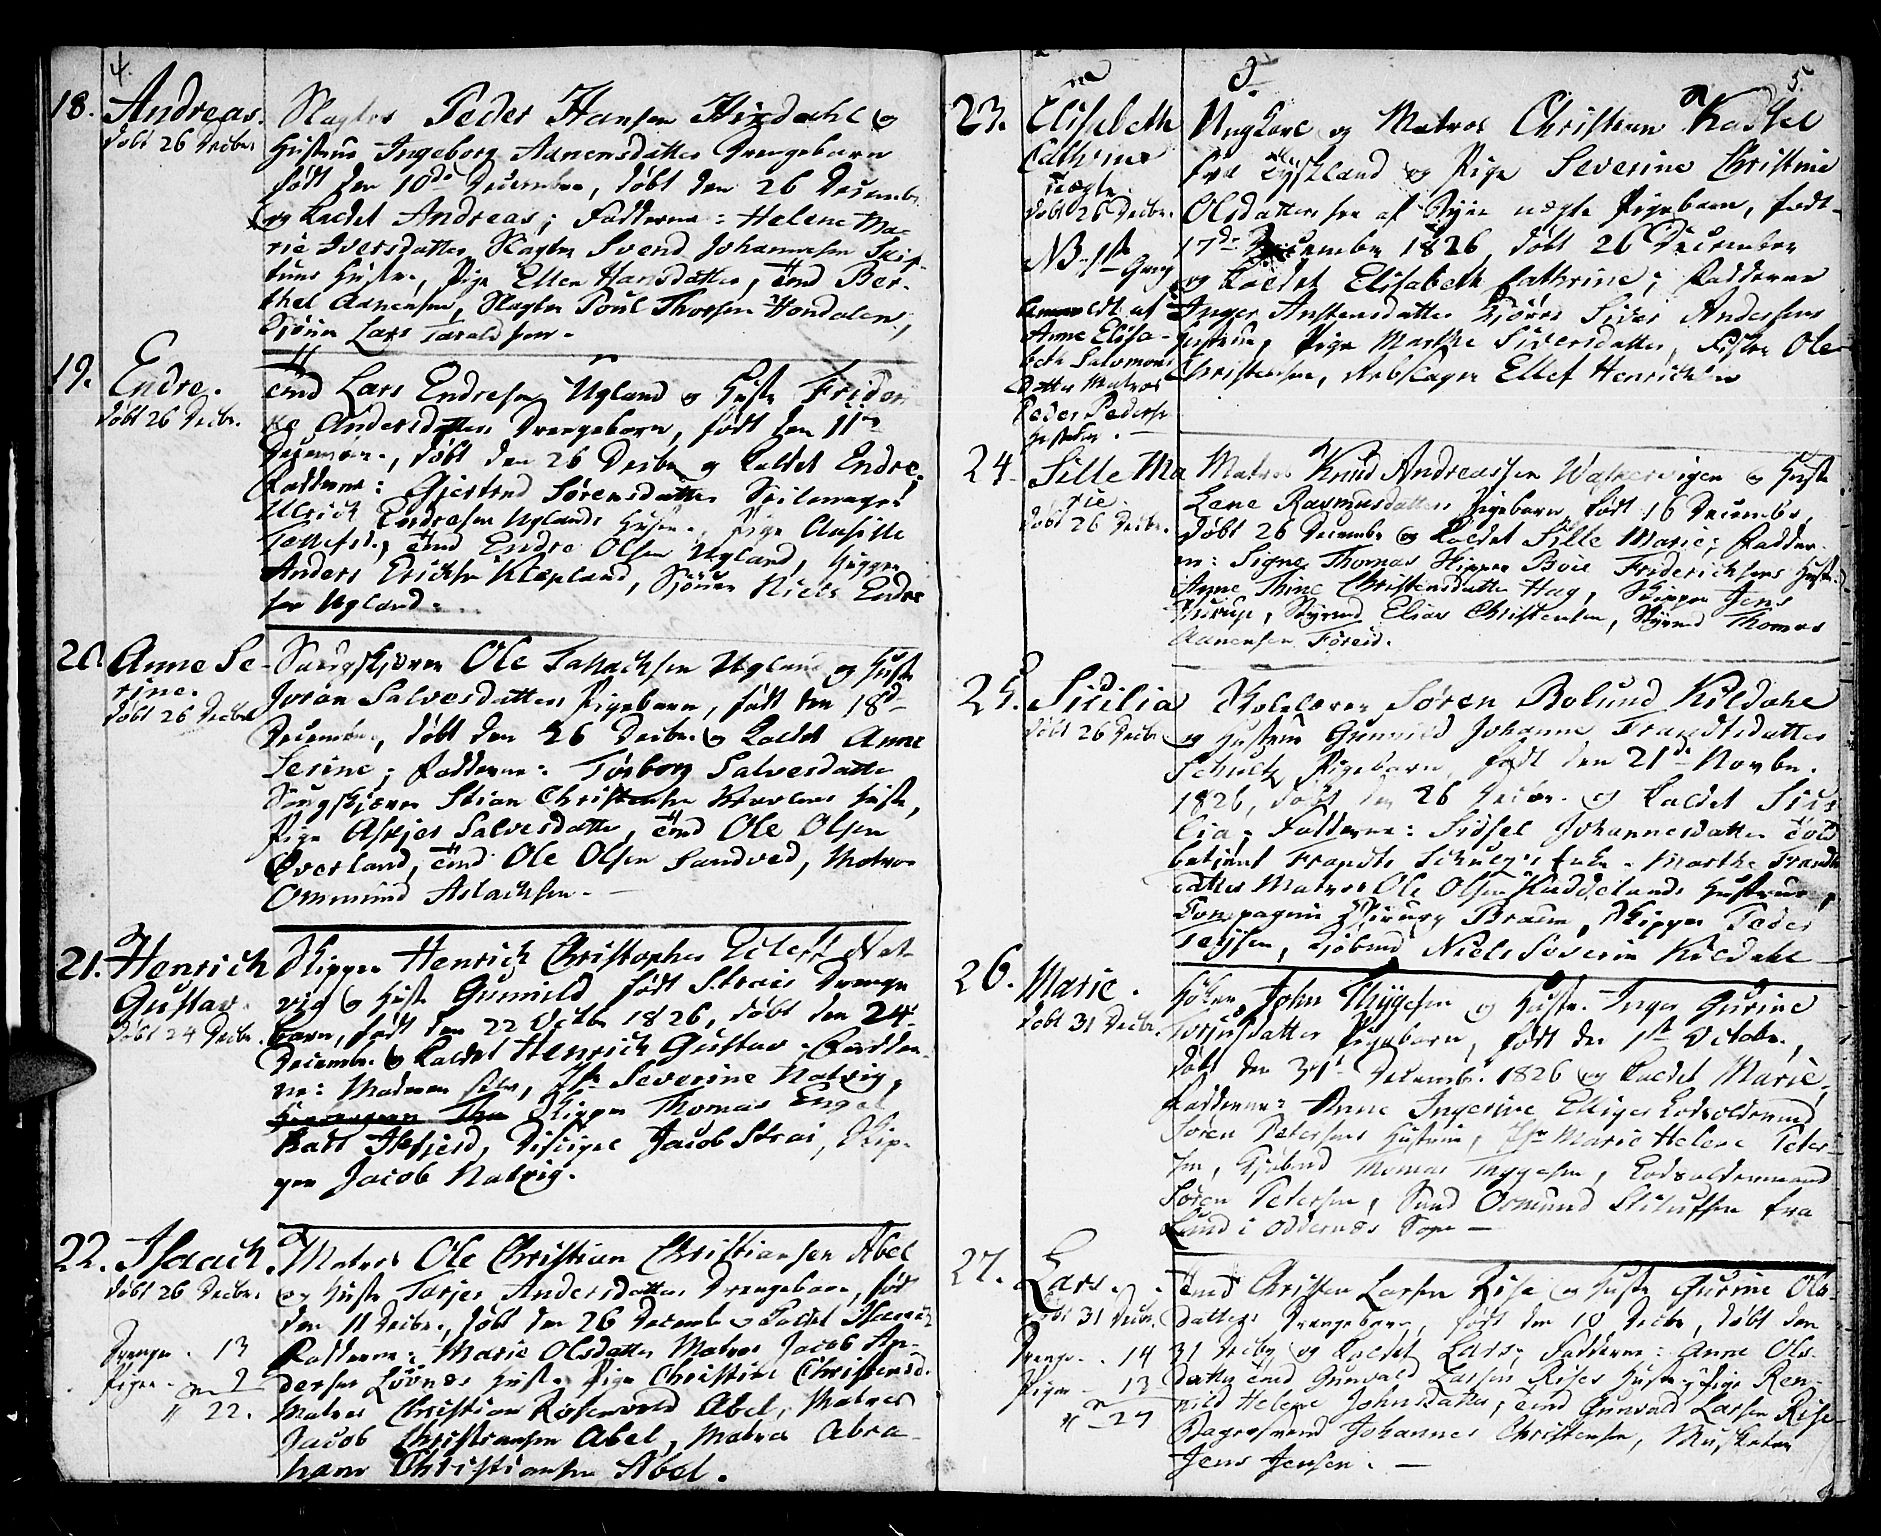 4.
18. Andreas.
døbt 26 Decbr.
Slagter Peder Hansen Hirdahl og
Hustrue Ingeborg Aanensdatters Drengebarn
født den 10de December, døbt den 26 Decembr.
og kaldet Andreas; Fadderne: Helene Ma-
rie Iversdatter Slagter Svend Johannesen
Hustru, Pige Ellen Hansdatter, Tmd Ber-
thel Aanensen, Slagter Poul Thorsen Hondalen,
Lars Taraldsen.
19. Endre.
døbt 26 Decbr.
Tmd Lars Endresen Ugland og Hustr Frider
ke Andersdatters Drengebarn, født den 11te
December, døbt den 26 Decbr og kaldet Endre.
Fadderne: Gjertrud Sørensdatter Seilmager
Ulrich Endresen Uglands Hustru, Pige
Tmd Endre Olsen Ugland,
Anders Erichsen Klepland, Niels Endre
sen Ugland.
20. Anne Se-
rine.
døbt 26 Decbr
Ole Tallachsen Ugland og Hustr
Joran Salvesdatters Pigebarn, født den 18de
December, døbt den 26 Decbr. og kaldet Anne
Serine; Fadderne: Torborg Salvesdatter
Stian Christensen Hustr,
Pige Asgjer Salvesdatter, Tmd Ole Olsen
Øverland, Tmd Ole Olsen Sandved, Matros
Ommund Aslachsen.
21. Henrich
Gustav.
døbt 24 Decbr.
Skipper Henrich Christopher Eilert Nat-
vig og Hustr Gunnild født Strais Drenge
barn, født den 22 Octbr 1826, døbt den 24
December og kaldet Henrich Gustav. Fadder-
ne: Madmen selv, Jfr Severine Natvig,
Skipper Thomas Engel
hart Isefjerd, Jacob Strai, Skip-
per Jacob Natvig.
22. Isaach.
døbt 26 Decbr.
Matros Ole Christian Christiansen Abel
og Hustr Tarjer Andersdatters Drengebarn, født
den 11 Decbr., døbt den 26 Decemb og kaldet Isaach
Fadderne: Marie Olsdatter Matros Jacob An-
dersen Løvnes Hustr Pige Christine Christensd.
Matros Christian Rosenvold Abel, Matros
Jacob Christiansen Abel, Matros Abra-
ham Christiansen Abel.
Drenge . 13
Piger . 9
22.
5.
23. Elisabeth
Cathrine
uægte
døbt 26 Decbr.
NB 1ste Gang
anmeldt af
Anne Elisa-
beth Salomons
datter Matros
Peder Peders
Hustrue.
Ungkarl og Matros Christian Kastel
fra Tyskland og Pige Severine Christine
Olsdatter her af Byen uægte Pigebarn, født
17de December 1826, døbt 26 December
og kaldet Elisabeth Cathrine; Fadderne
Inger Anstensdatter Siver Andersens
Hustrue, Pige Marthe Siversdatter, Fisker Ole
Christensen, Rebslager Ellef Henrichsen
24. Sille Ma
rie.
døbt 26 Decbr.
Matros Knud Andreassen Waskervigen og Hustr
Lene Rasmusdatters Pigebarn født 16 December,
døbt 26 December og kaldet Sille Marie; Fadder-
ne: Signe Thomas Skipper Boie Friderichsens Hustr
Anne Thine Christensdatter Hag, Skipper Jens
Styrmd Elias Christensen, Styrmd Thomas
Aanensen Foreid.
25. Sicilia
døbt 26 Decbr.
Skolelærer Søren Bolund Kildahl
og Hustrue Gunnild Johanne Frandtsdatter
Schultz Pigebarn, født den 21de Novbr.
1826, døbt den 26 Decbr. og kaldet Sici-
lia; Fadderne: Sidsel Johannesdatter Told
betjent Frandts Schulz's Enke, Marthe Frandts
datter Matros Ole Olsen Haddelands Hustrue,
Compagnie Chirurg Braun, Skipper Peder
Niels Severin Kildahl
26. Marie.
døbt 31 Decbr.
John Thygesen og Hustr. Inger Gurine
Torjusdatters Pigebarn, født den 1ste October,
døbt den 31te December 1826 og kaldet Marie,
Fadderne: Anne Ingerine Elliger Lodsoldermand
Søren Petersens Hustrue, Jfr Marie Helene Peter-
sen, Thomas Thygesen, Lodsoldermand
Søren Petersen, Osmund fra
Lund i Oddernes Sogn
27. Lars.
døbt 31 Decbr.
Tmd Christen Larsen Rise og Hustr Gurine Ols-
datters Drengebarn, født den 10 Decbr, døbt den
31 Decbr og kaldet Lars; Fadderne: Anne Ols-
datter Tmd Gunvald Larsen Rises Hustr, Pige Ren-
nild Helene Johnsdatter, Tmd Gunvald Larsen Rise
Johannes Christensen, Musketer
Jens Jensen.
Drenge . 14
Piger . 13
27